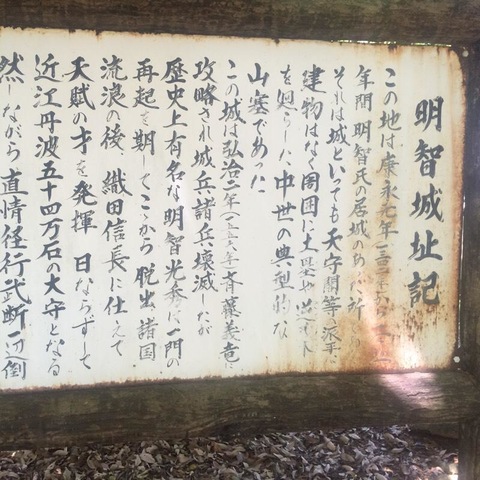 明智城址記
この地は康永元年
年間明智氏の居城のあった所
それは城といっても天守閣等の派手
建物はなく周囲に土塁や
を廻らした中世の典型的な
山塞であった
この城は弘治二年 斉藤義竜に
攻略され城兵諸兵壊滅したが
歴史上有名な明智光秀は一門の
再起を期してここから脱出諸国
流浪の後、織田信長に仕えて
天賦の才を発揮 日ならずして
近江丹波五十四万石の太守となる
然しながら直情径行武断一辺倒